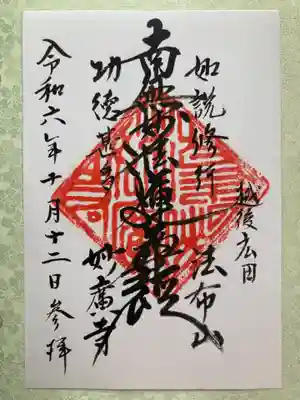 越後広田
如説修行 法布山
南無妙法蓮華経
功徳甚多 妙廣寺
令和六年十月十二日参拝